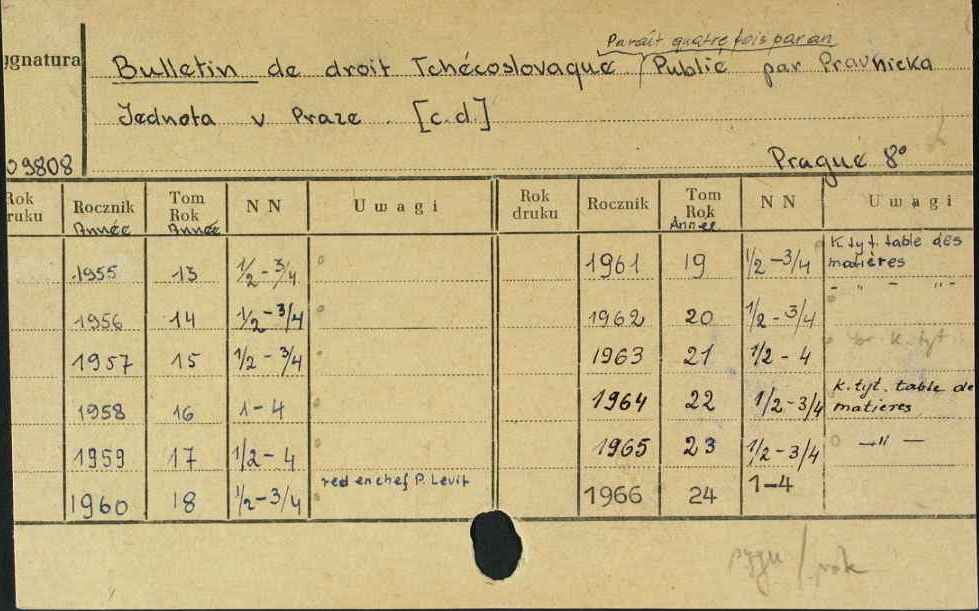 Paraît quatre fois par an
ygnatura
Bulletin de droit Tchécoslovaque. Publié par Pravnicka
Jednota v Praze. [c.d.]
09808
Prague 8°
Rok druku Rocznik Année Tom Rok Année NN Uwagi Rok druku Rocznik Tom Rok Année NN Uwagi
1955 13 1/2-3/4 1961 19 1/2-3/4 K. tyt. table des matières
1956 14 1/2-3/4 1962 20 1/2-3/4 - " - " -
1957 15 1/2-3/4 1963 21 1/2-4 br K. tyt
1958 16 1-4 1964 22 1/2-3/4 K. tyt. table de matieres
1959 17 1/2-4 1965 23 1/2-3/4 -"-
1960 18 1/2-3/4 red en chef P. Levit 1966 24 1-4